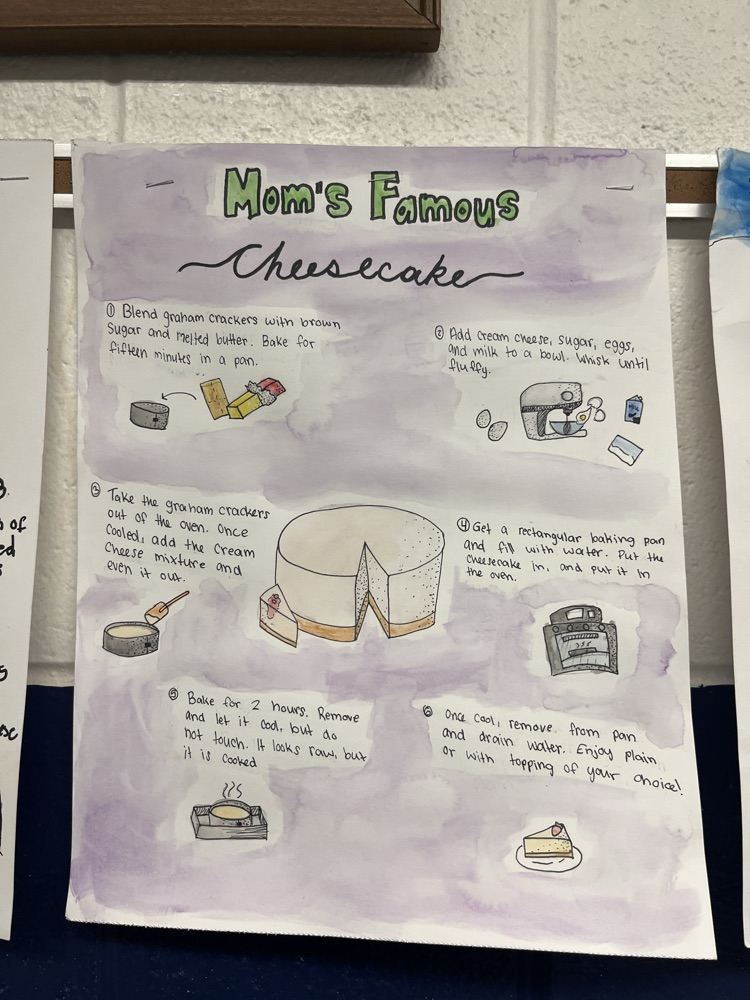 Mom's Famous
Cheesecake
① Blend graham crackers with brown
sugar and melted butter. Bake for
fifteen minutes in a pan.
② Add cream cheese, sugar, eggs,
and milk to a bowl. Whisk until
fluffy.
③ Take the graham crackers
out of the oven. Once
cooled, add the cream
cheese mixture and
even it out.
④ Get a rectangular baking pan
and fill with water. Put the
cheesecake in, and put it in
the oven.
⑤ Bake for 2 hours. Remove
and let it cool, but do
not touch. It looks raw, but
it is cooked
⑥ Once cool, remove from pan
and drain water. Enjoy plain
or with topping of your choice!
3.
of